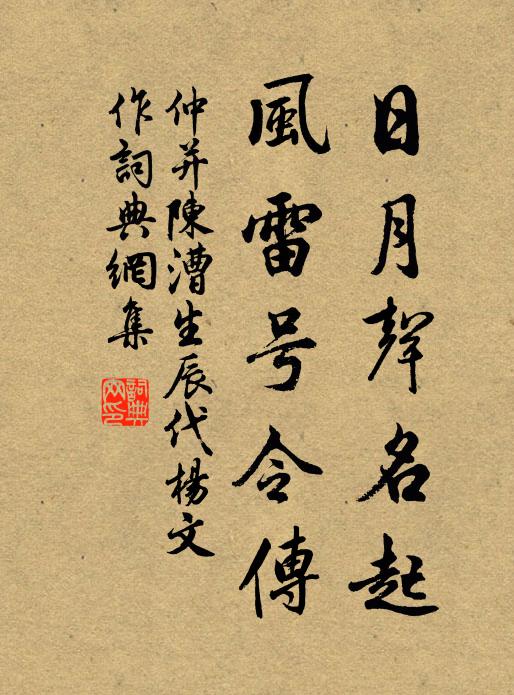 日月聲名起
風雷号令傳
仲并陳漕生辰代楊文
作詞典網集
詞典網印